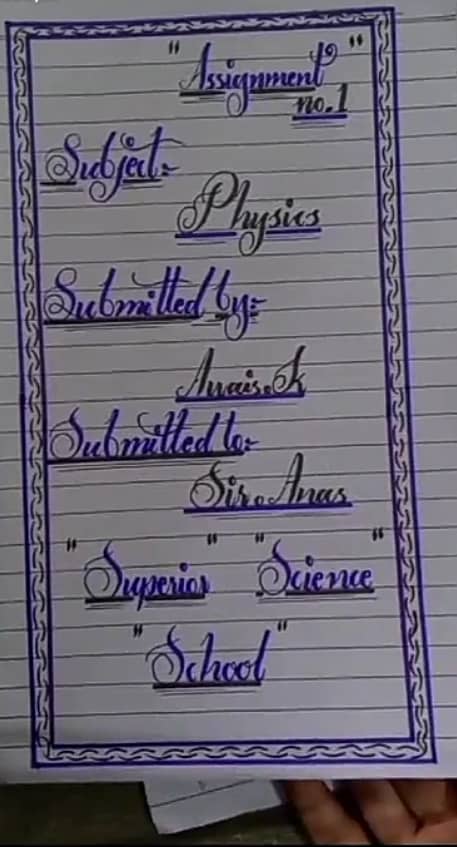 " Assignment "
no. 1
Subject:-
Physics
Submitted by:-
Awais.K
Submitted to:-
Sir. Anas
" Superior " " Science "
" School "